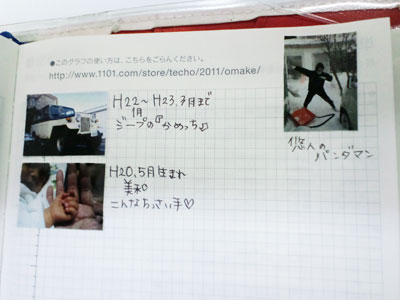 ●このグラフの使い方は、こちらをごらんください。
http://www.1101.com/store/techo/2011/omake/
H22〜H23.3月まで
1月
ジープの『かめっち』
悠人の
パンダマン
H20.5月生まれ
美和
こんなちっさい手♡